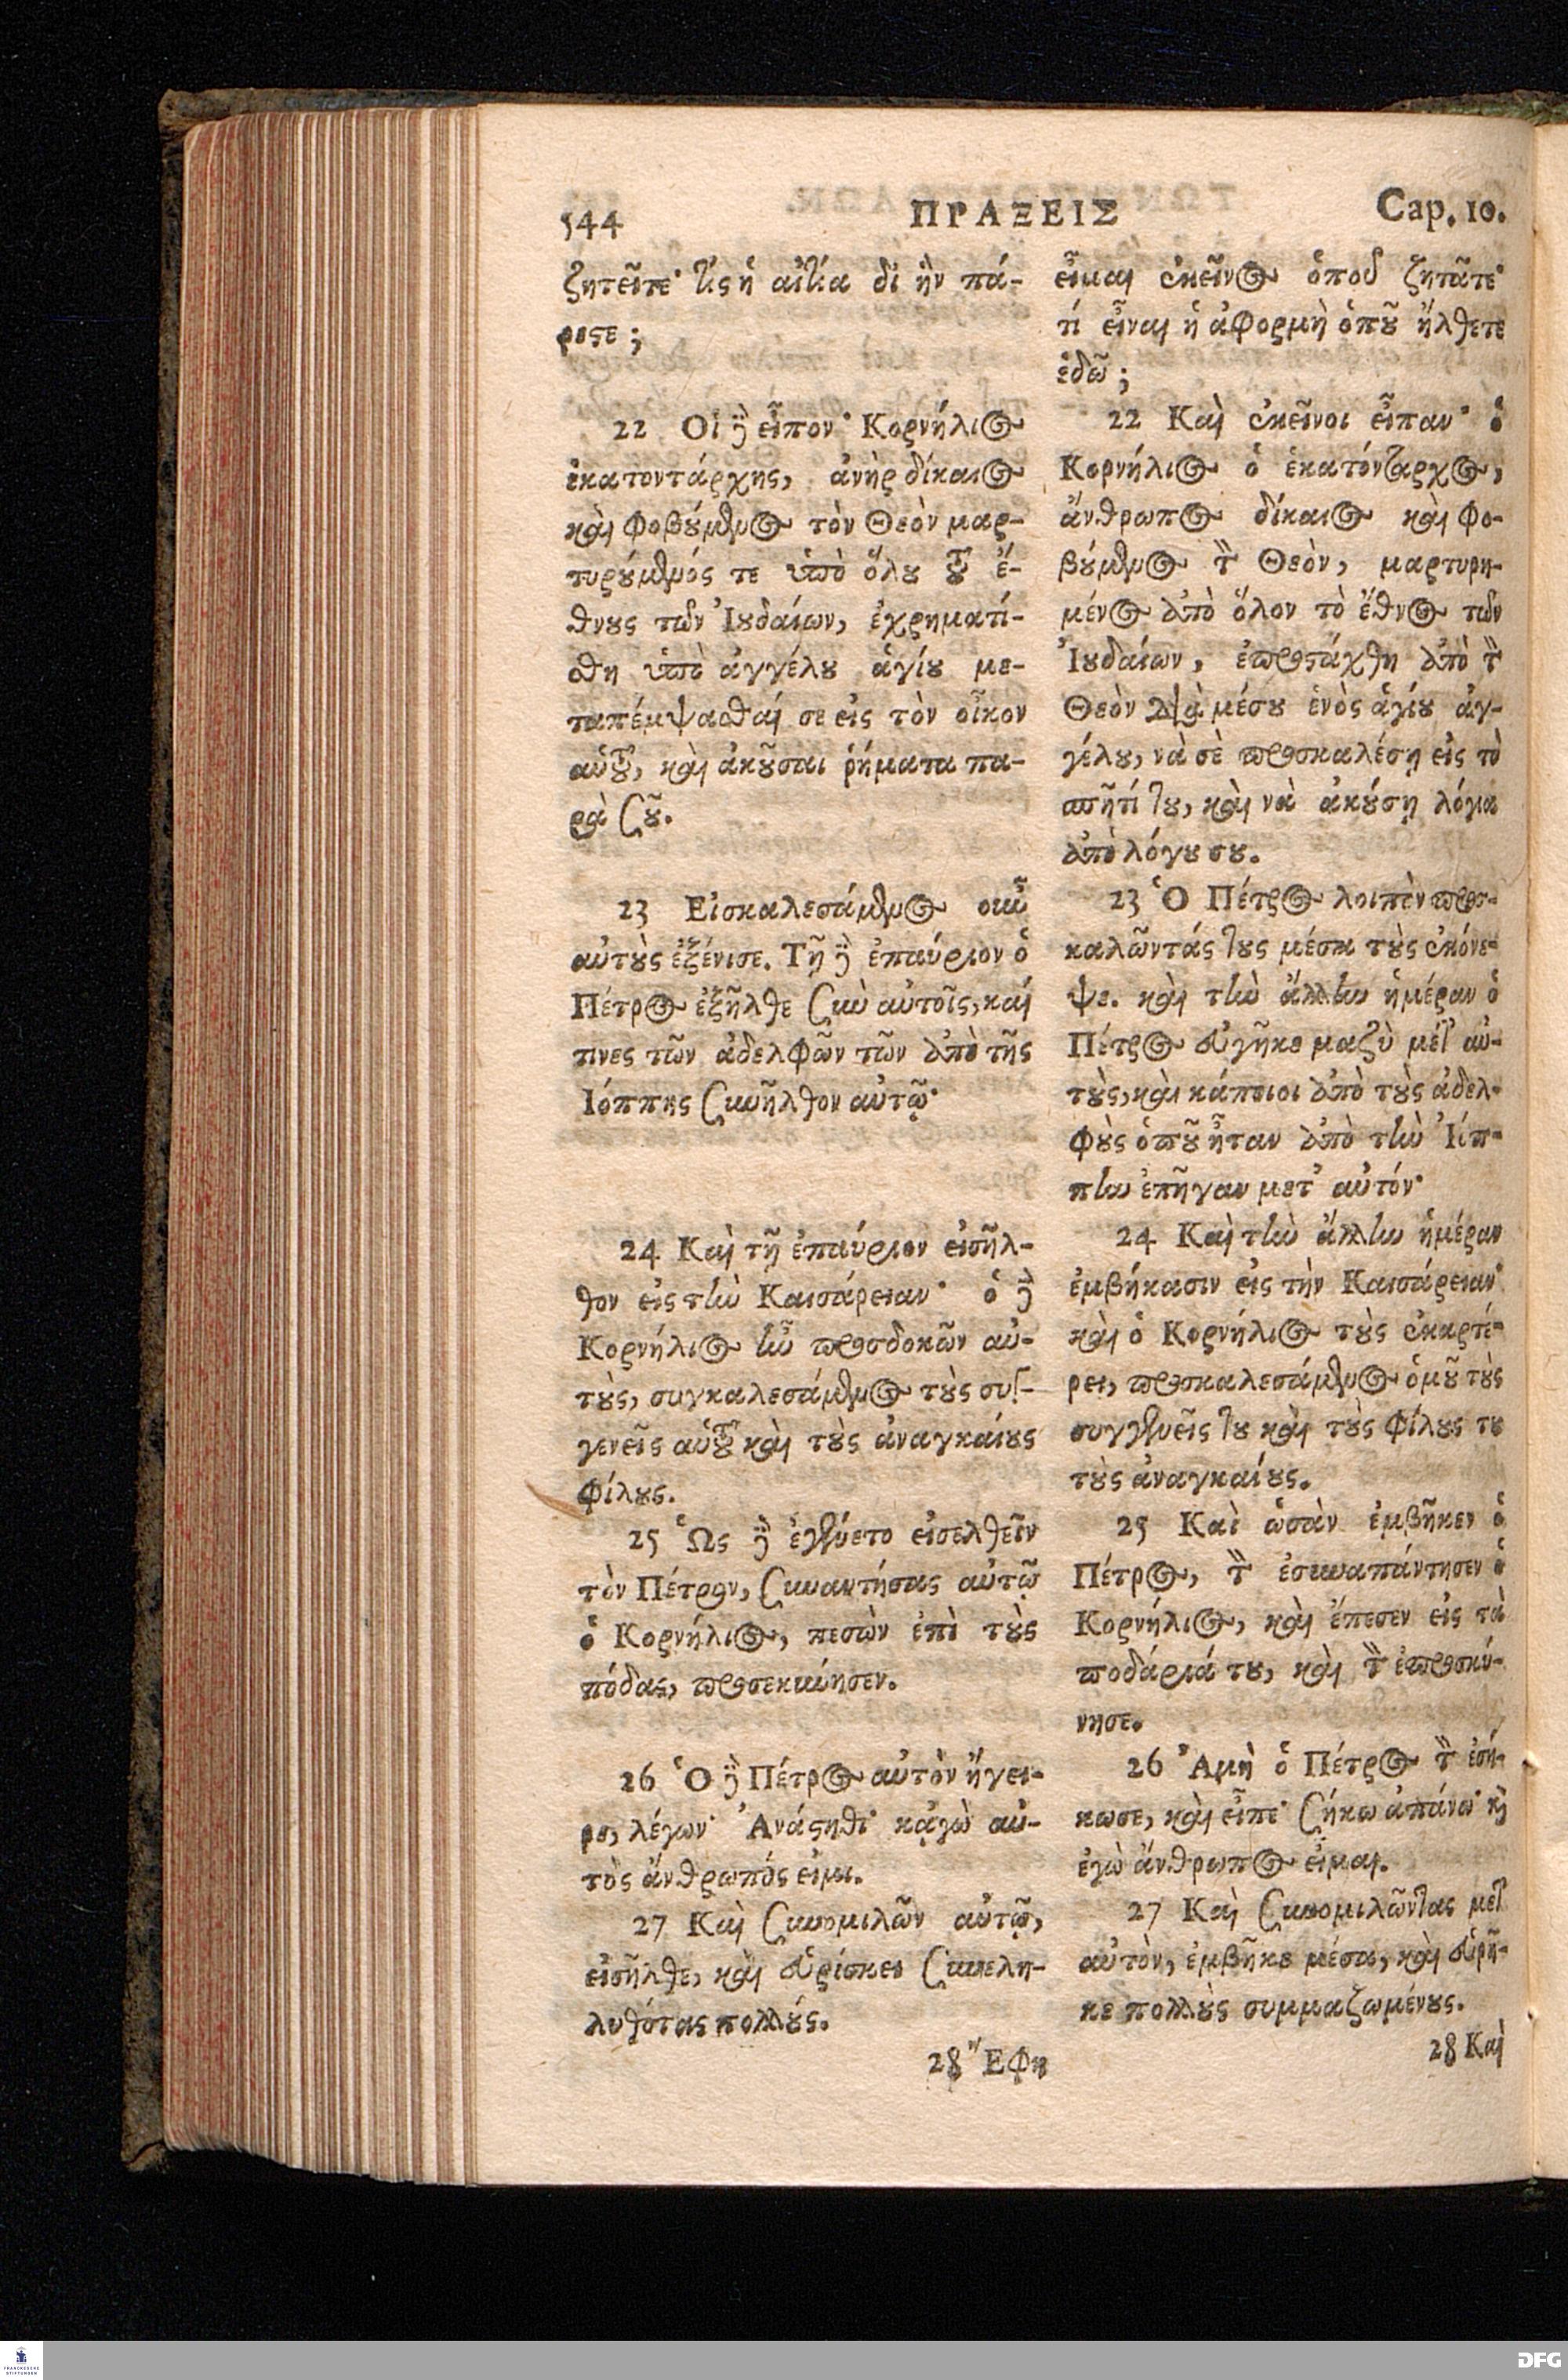 544 ΠΡΑΞΕΙΣ Cap. 10.
ζητεῖτε· τίς ἡ αἰτία δι' ἣν πά-
ρεστε;
22 Οἱ δὲ εἶπον· Κορνήλιος
ἑκατοντάρχης, ἀνὴρ δίκαιος
καὶ φοβούμενος τὸν Θεὸν μαρ-
τυρούμενός τε ὑπὸ ὅλου τοῦ ἔ-
θνους τῶν Ἰουδαίων, ἐχρηματί-
σθη ὑπὸ ἀγγέλου ἁγίου με-
ταπέμψασθαί σε εἰς τὸν οἶκον
αὑτοῦ, καὶ ἀκοῦσαι ῥήματα πα-
ρὰ σοῦ.
23 Εἰσκαλεσάμενος οὖν
αὐτοὺς ἐξένισε. Τῇ δὲ ἐπαύριον ὁ
Πέτρος ἐξῆλθε σὺν αὐτοῖς, καί
τινες τῶν ἀδελφῶν τῶν ἀπὸ τῆς
Ἰόππης συνῆλθον αὐτῷ·
24 Καὶ τῇ ἐπαύριον εἰσῆλ-
θον εἰς τὴν Καισάρειαν· ὁ δὲ
Κορνήλιος ἦν προσδοκῶν αὐ-
τοὺς, συγκαλεσάμενος τοὺς συγ-
γενεῖς αὑτοῦ καὶ τοὺς ἀναγκαίους
φίλους.
25 Ὡς δὲ ἐγένετο εἰσελθεῖν
τὸν Πέτρον, συναντήσας αὐτῷ
ὁ Κορνήλιος, πεσὼν ἐπὶ τοὺς
πόδας, προσεκύνησεν.
26 Ὁ δὲ Πέτρος αὐτὸν ἤγει-
ρε, λέγων· Ἀνάστηθι· κᾀγὼ αὐ-
τὸς ἄνθρωπός εἰμι.
27 Καὶ συνομιλῶν αὐτῷ,
εἰσῆλθε, καὶ εὑρίσκει συνελη-
λυθότας πολλούς.
28 Ἔφη
εἶμαι ἐκεῖνος ὁποῦ ζητᾶτε·
τί εἶναι ἡ ἀφορμὴ ὁποῦ ἤλθετε
ἐδῶ;
22 Καὶ ἐκεῖνοι εἶπαν· ὁ
Κορνήλιος ὁ ἑκατόνταρχος,
ἄνθρωπος δίκαιος καὶ φο-
βούμενος τὸν Θεὸν, μαρτυρη-
μένος ἀπὸ ὅλον τὸ ἔθνος τῶν
Ἰουδαίων, ἐπροστάχθη ἀπὸ τὸν
Θεὸν διὰ μέσου ἑνὸς ἁγίου ἀγ-
γέλου, νὰ σὲ προσκαλέσῃ εἰς τὸ
σπῆτί του, καὶ νὰ ἀκούσῃ λόγια
ἀπὸ λόγου σου.
23 Ὁ Πέτρος λοιπὸν προσ-
καλῶντάς τους μέσα τοὺς ἐκόνε-
ψε. καὶ τὴν ἄλλην ἡμέραν ὁ
Πέτρος εὐγῆκε μαζὺ μετ' αὐ-
τοὺς, καὶ κάποιοι ἀπὸ τοὺς ἀδελ-
φοὺς ὁποῦ ἦταν ἀπὸ τὴν Ἰόπ-
πην ἐπῆγαν μετ' αὐτόν·
24 Καὶ τὴν ἄλλην ἡμέραν
ἐμβήκασιν εἰς τὴν Καισάρειαν·
καὶ ὁ Κορνήλιος τοὺς ἐκαρτέ-
ρει, προσκαλεσάμενος ὁμοῦ τοὺς
συγγενεῖς του καὶ τοὺς φίλους του
τοὺς ἀναγκαίους.
25 Καὶ ὡσὰν ἐμβῆκεν ὁ
Πέτρος, τὸν ἐσυναπάντησεν ὁ
Κορνήλιος, καὶ ἔπεσεν εἰς τὰ
ποδάριά του, καὶ τὸν ἐπροσκύ-
νησε.
26 Ἀμὴ ὁ Πέτρος τὸν ἐσή-
κωσε, καὶ εἶπε· σήκω ἀπάνω· καὶ
ἐγὼ ἄνθρωπος εἶμαι.
27 Καὶ συνομιλῶντας μετ'
αὐτὸν, ἐμβῆκε μέσα, καὶ εὑρῆ-
κε πολλοὺς συμμαζωμένους.
28 Καὶ
FRANCKESCHE
STIFTUNGEN
DFG